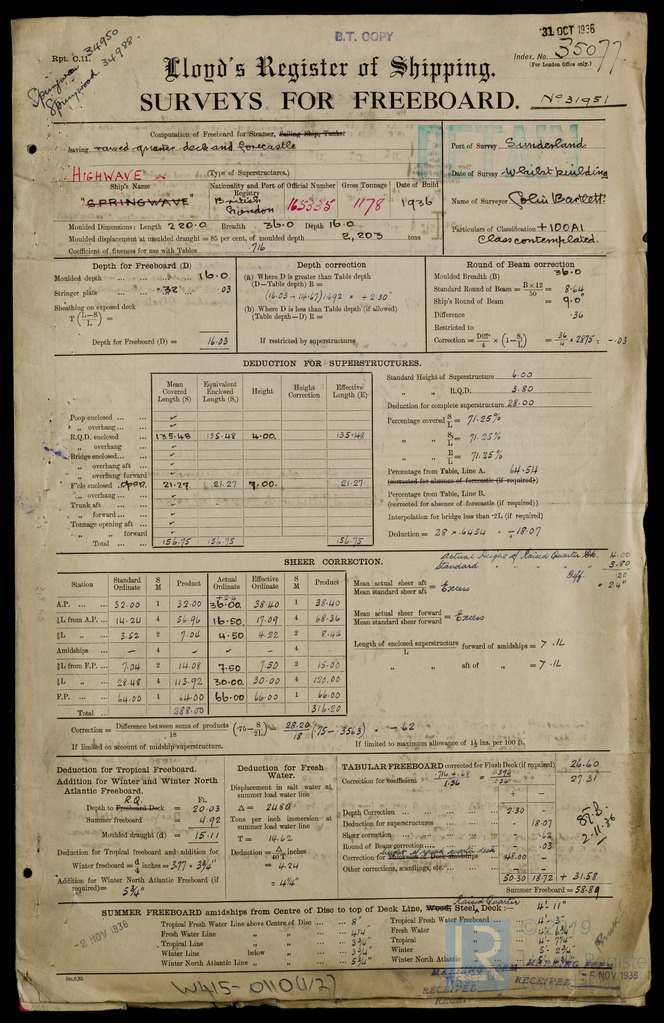 31 OCT 1936
B.T. COPY
Rpt. C.11.
Springwave 34950
Springwood 34988.
Index. No. 35077
(For London Office only.)
Lloyd's Register of Shipping.
SURVEYS FOR FREEBOARD.
No 31951
RETAIN
Computation of Freeboard for Steamer, Sailing Ship, Tanker
having raised quarter deck and forecastle
(Type of Superstructures.)
HIGHWAVE
Ship's Name
"SPRINGWAVE"
Nationality and Port of Registry
British
London
Official Number
165335
Gross Tonnage
1178
Date of Build
1936
Moulded Dimensions: Length 220.0 Breadth 36.0 Depth 16.0
Moulded displacement at moulded draught = 85 per cent. of moulded depth 2,203 tons
Coefficient of fineness for use with Tables .716
Port of Survey Sunderland
Date of Survey Whilst building
Name of Surveyor Colin Bartlett
Particulars of Classification +100A1
Class contemplated.
Depth for Freeboard (D)
Moulded depth ... 16.0
Stringer plate ... .32 .03
Sheathing on exposed deck
T (L-S/L) =
Depth for Freeboard (D) = 16.03
Depth correction
(a) Where D is greater than Table depth
(D—Table depth) R =
(16.03 - 14.67) 1.692 = + 2.30
(b) Where D is less than Table depth (if allowed)
(Table depth—D) R =
If restricted by superstructures
Round of Beam correction
Moulded Breadth (B) 36.0
Standard Round of Beam = B×12/50 = 8.64
Ship's Round of Beam = 9.0
Difference .36
Restricted to
Correction = Diff/4 × (1 - S₁/L) = .36/4 × .2875 = -.03
DEDUCTION FOR SUPERSTRUCTURES.
Mean Covered Length (S) Equivalent Enclosed Length (S₁) Height Height Correction Effective Length (E)
Poop enclosed ...
„ overhang ...
R.Q.D. enclosed 135.48 135.48 4.00 135.48
„ overhang
Bridge enclosed...
„ overhang aft ...
„ overhang forward
F'cle enclosed 21.27 21.27 7.00 21.27
„ overhang ...
Trunk aft ...
„ forward ...
Tonnage opening aft ...
„ „ forward
Total ... 156.75 156.75 156.75
Standard Height of Superstructure 6.00
„ „ R.Q.D. 3.80
Deduction for complete superstructure 28.00
Percentage covered S/L = 71.25%
„ S₁/L = 71.25%
„ E/L = 71.25%
Percentage from Table, Line A. 64.54
(corrected for absence of forecastle (if required))
Percentage from Table, Line B.
(corrected for absence of forecastle (if required))
Interpolation for bridge less than ·2L (if required)
Deduction = 28 × .6454 = -18.07
SHEER CORRECTION.
Station Standard Ordinate S M Product Actual Ordinate Effective Ordinate S M Product
A.P. ... 32.00 1 32.00 36.00 38.40 1 38.40
⅙L from A.P. ... 14.24 4 56.96 16.50 17.09 4 68.36
⅓L „ 3.52 2 7.04 4.50 4.22 2 8.44
Amidships ... - 4 - - - 4 -
⅓L from F.P. ... 7.04 2 14.08 7.50 7.50 2 15.00
⅙L „ 28.48 4 113.92 30.00 30.00 4 120.00
F.P. ... 64.00 1 64.00 66.00 66.00 1 66.00
Total ... 288.00 316.20
Actual Height of Raised Quarter Dk. 4.00
Standard „ „ „ „ 3.80
Diff. .20
= 2.4"
Mean actual sheer aft / Mean standard sheer aft = Excess
Mean actual sheer forward / Mean standard sheer forward = Excess
Length of enclosed superstructure / L forward of amidships = 7 .1L
„ „ aft of „ = 7 .1L
Correction = Difference between sums of products / 18 (·75 - S/2L) = 28.20/18 (.75 - .3563) = - .62
If limited on account of midship superstructure.
If limited to maximum allowance of 1½ ins. per 100 ft.
Deduction for Tropical Freeboard.
Addition for Winter and Winter North Atlantic Freeboard.
R.Q. Ft.
Depth to Freeboard Deck = 20.03
Summer freeboard = 4.92
Moulded draught (d) = 15.11
Deduction for Tropical freeboard and addition for
Winter freeboard = d/4 inches = 3.77 = 3¾"
Addition for Winter North Atlantic Freeboard (if required) = 5¾"
Deduction for Fresh Water.
Displacement in salt water at summer load water line
Δ = 2480
Tons per inch immersion at summer load water line
T = 14.62
Deduction = Δ/40T inches
= 4.24
= 4¼"
TABULAR FREEBOARD corrected for Flush Deck (if required) 26.60
Correction for coefficient .716+.68/1.36 = 1.396/1.36 27.31
+ -
Depth Correction 2.30 -
Deduction for superstructures - 18.07
Sheer correction - .62
Round of Beam correction - .03
Correction for height of raised quarter deck 48.00 -
Other corrections, scantling, etc. - -
50.30 18.72 + 31.58
Summer Freeboard = 58.89
2-11-36
SUMMER FREEBOARD amidships from Centre of Disc to top of Deck Line, Wood, Steel, Deck:— Raised Quarter 4'- 11"
Tropical Fresh Water Line above Centre of Disc ... 8"
Fresh Water Line „ „ 4¼"
Tropical Line „ „ 3¾"
Winter Line below „ 3¾"
Winter North Atlantic Line „ „ 5¾"
Tropical Fresh Water Freeboard 4'- 3"
Fresh Water „ 4'- 6¾"
Tropical „ 4'- 7¼"
Winter „ 5'- 2¾"
Winter North Atlantic „ 5'- 4¾"
-2 NOV 1936
MARKING FORM
RECEIVED
MARKING FORM
RECEIVED
5 NOV 1936
W415-0110(1/2)
© 2019
Lloyd's Register
LR